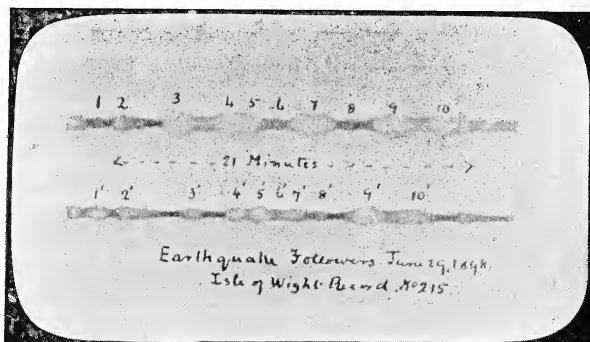 1 2 3 4 5 6 7 8 9 10
21 Minutes
1' 2' 3' 4' 5' 6' 7' 8' 9' 10'
Earthquake Followers June 29, 1898.
Isle of Wight Record No 215